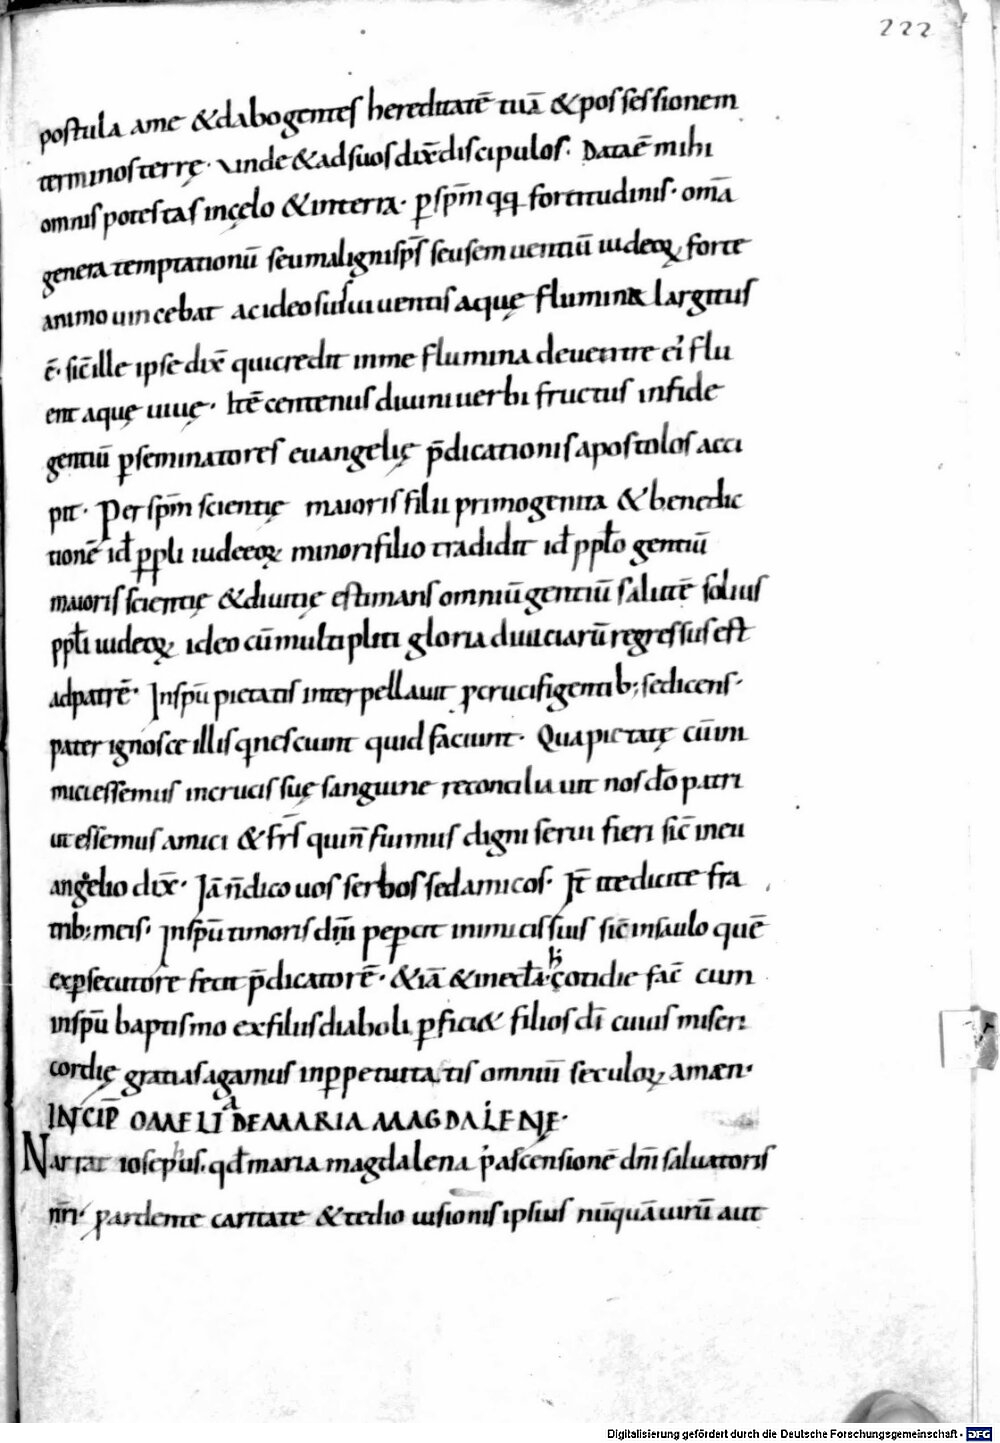 222
postula ame &dabo gentes hereditatē tuā &possessionem
terminos terrę. Vnde &adsuos dix̄ discipulos. Data ē mihi
omnis potestas in cęlo &interra. ꝑ sp̄m qq fortitudinis. om̄a
genera temptationū seu maligni sp̄s seu sem uentiū iudeoꝝ forte
animo uincebat ac ideo sui uiuentis aquę flumina largitus
ē. sic̄ ille ipse dix̄ qui credit inme flumina deuentre ei flu
ent aquę uiuę. Itē centenus diuini uerbi fructus infide
gentiū ꝑ seminatores euangelię p̄dicationis apostolos acci
pit. Per sp̄m scientię maioris filii primogenita &benedic
tionē id ppli iudeeoꝝ minori filio tradidit id pplo gentiū
maioris scientię &diuitię estimans omniū gentiū salutē solius
ppli iudeoꝝ ideo cū multipliti gloria diuiciarū regressus est
ad patrē. Insp̄u pietatis interpellauit ꝓ crucifigentib; se dicens.
pater ignosce illis q nesciunt quid faciunt. Qua pietatę cū ini
mici essemus in crucis suę sanguine reconciliauit nos do patri
ut essemus amici &frs̄ qui n̄ fuimus digni serui fieri sic̄ in eu
angelio dix̄. Iā n̄ dico uos serbos sed amicos. It̄ ite dicite fra
trib; meis. Insp̄u timoris dn̄i peperit inimicis suis sic̄ insaulo quē
exꝑsecutore fecit p̄dicatorē. &iā &inecl̄a cotidie fac̄ cum
insp̄u baptismo exfilius diaboli ꝑfici& filios dī cuius miseri
cordię gratias agamus inꝑpetuitatis omniū seculoꝝ amæn.
INCIP̄ OMELIa DE MARIA MAGDALENE.
Narrat iosephus. qd maria magdalena p ascensionē dn̄i saluatoris
nr̄i. pardente caritate &tedio uisionis ipsius nūquā uirū aut
Digitalisierung gefördert durch die Deutsche Forschungsgemeinschaft - DFG